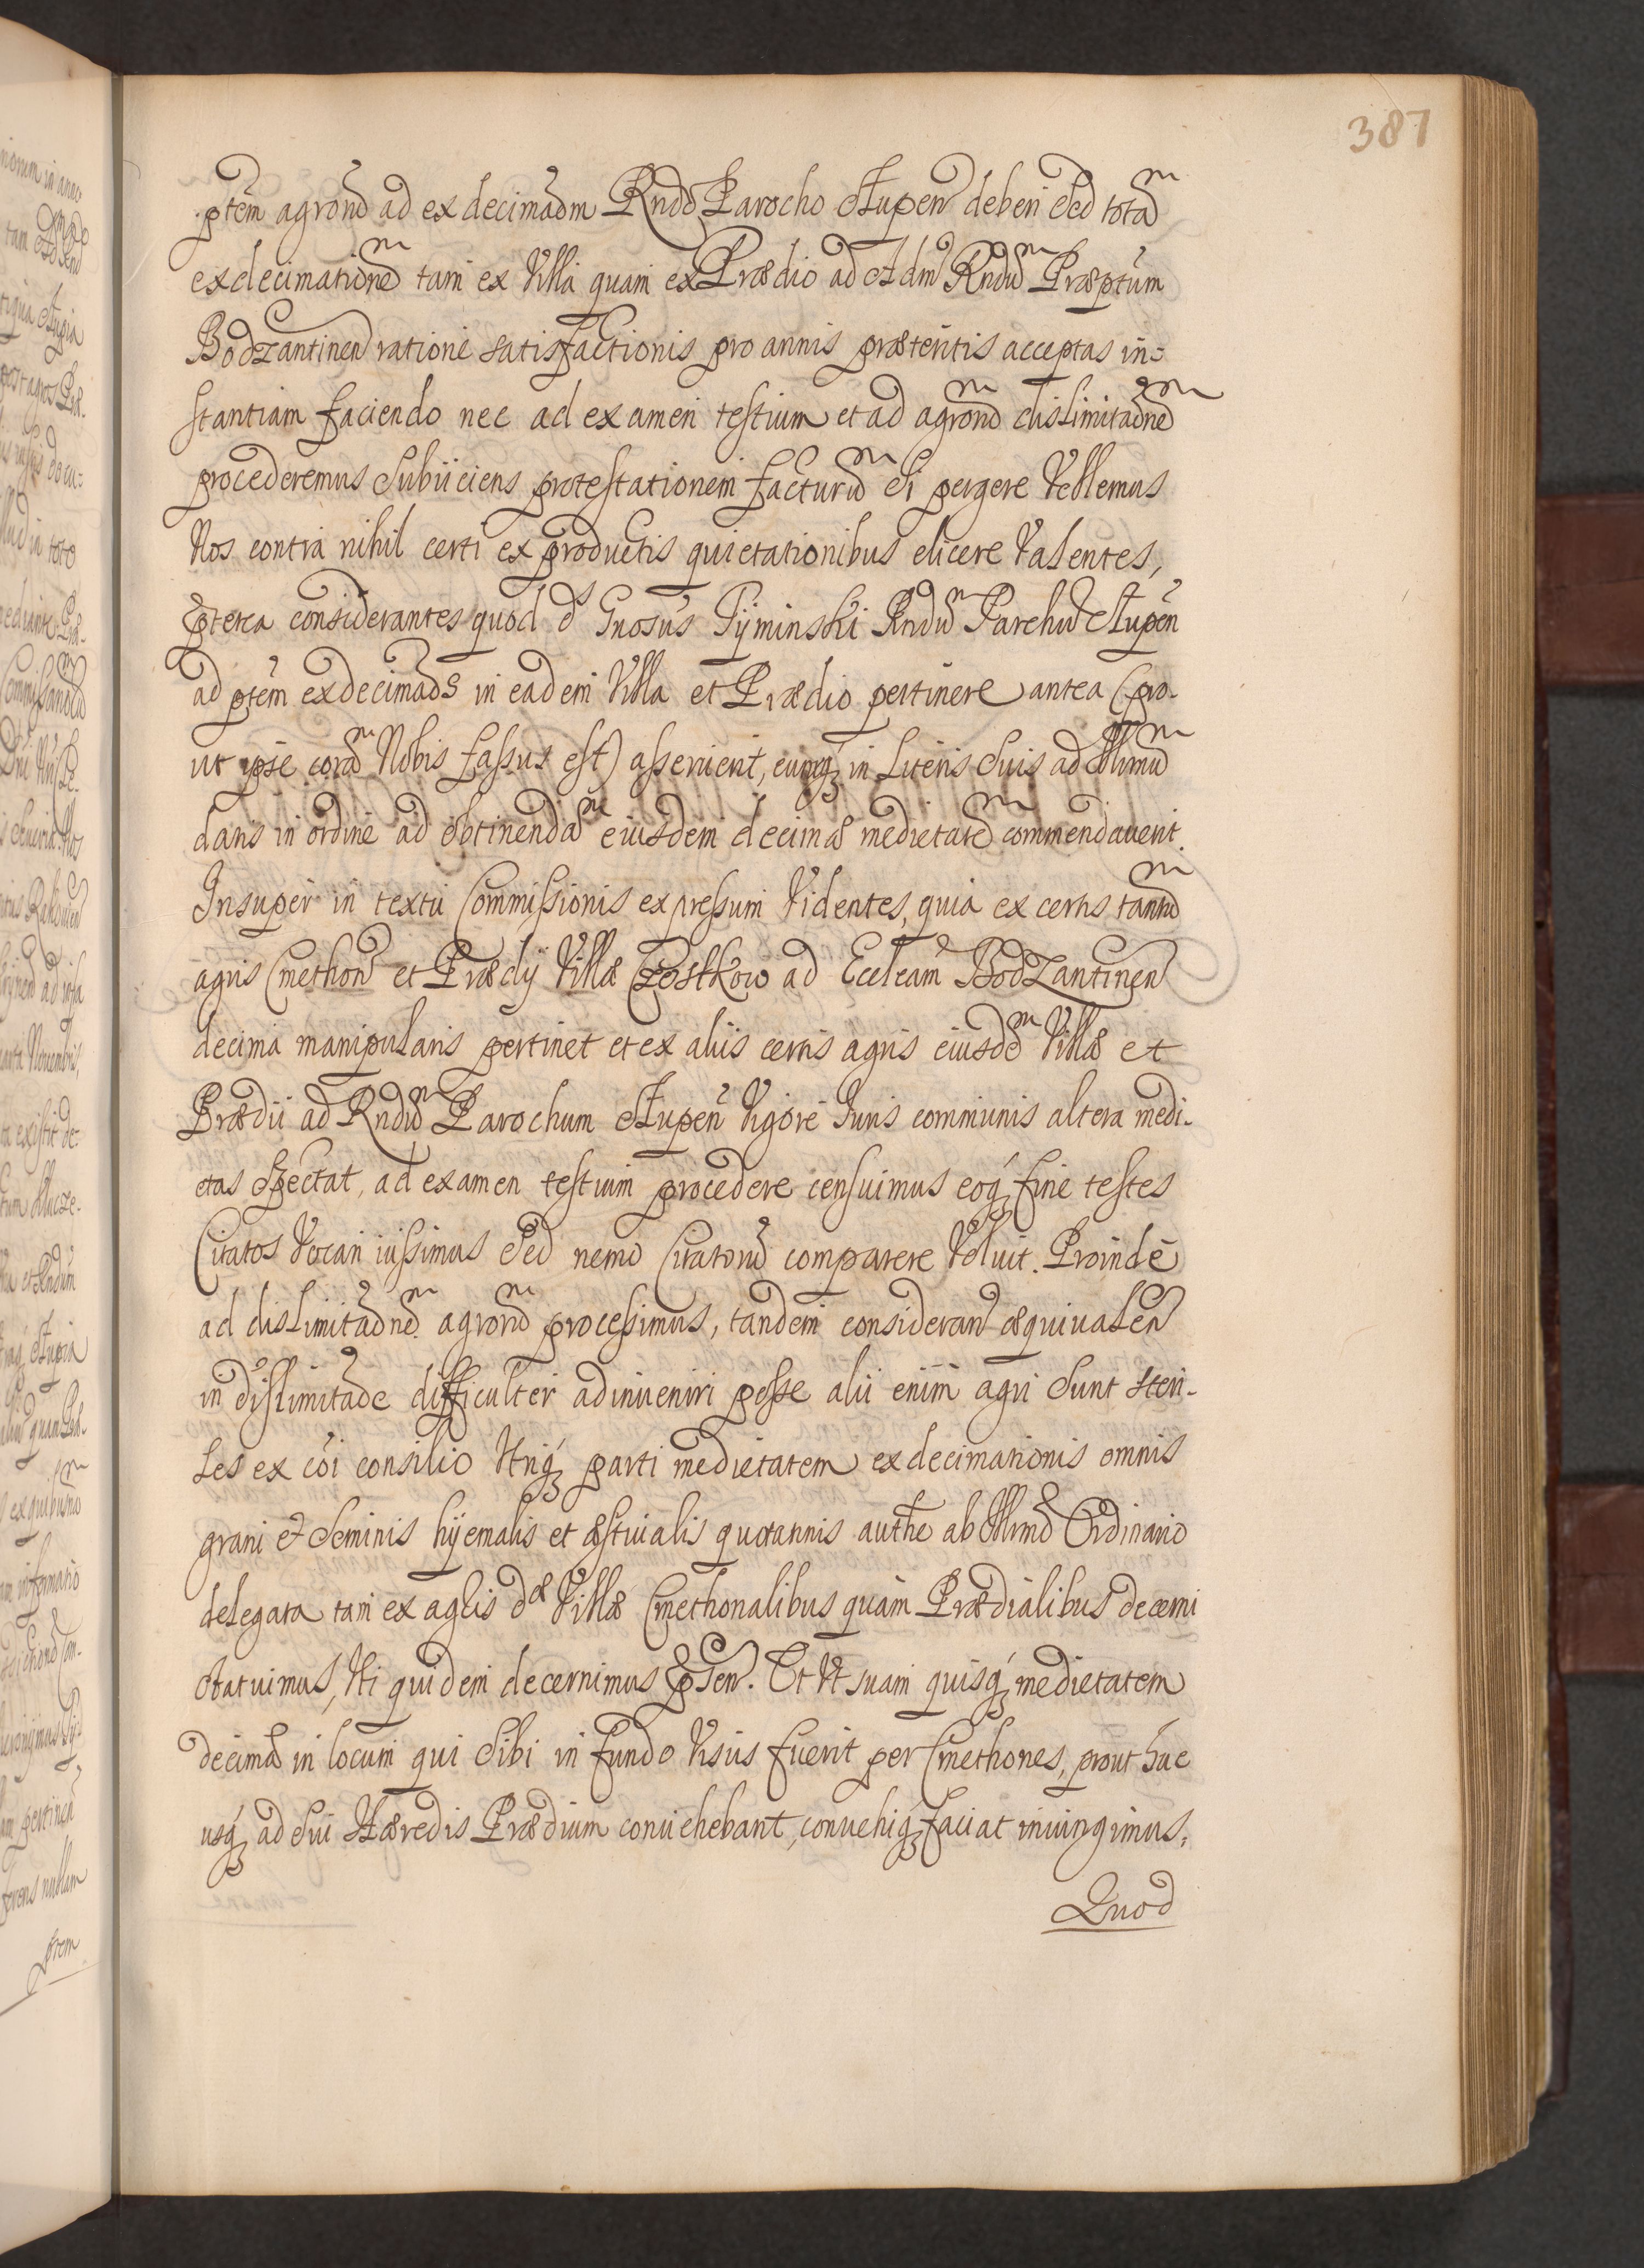 387
ptem agrorum ad exdecimaom Rndo Parocho Stupen deberi Sed totam
exdecimationem tam ex Villa quam ex Prædio ad Adm Rndum Præptum
Bodzantinen ratione satisfactionis pro annis præteritis acceptas in=
stantiam faciendo nec ad examen testium et ad agrorum dislimitaonem
procederemus Subiiciens protestationem facturum Si pergere Vellemus
Nos contra nihil certi ex productis quietationibus elicere Valentes,
pterea considerantes quod d Gnosus Pijminski Rndum Parchum Stupen
ad ptem exdecimaos in eadem Villa et Prædio pertinere antea (pro-
ut ipse coram Nobis fassus est) asseruerit, eumq in Literis Suis ad Illmum
datis in ordine ad obtinendam eiusdem decimæ medietatem commendauerit.
Insuper in textu Commissionis expressum Videntes, quia ex certis tantum
agris Cmethon et Prædij Villæ Czostkow ad Eccleam Bodzantinen
decima manipularis pertinet et ex aliis certis agris eiusdem Villæ et
Prædii ad Rndum Parochum Stupen Vigore Iuris communis altera medi-
etas Spectat, ad examen testium procedere censuimus eoq fine testes
Citatos Vocari iussimus Sed nemo Citatorum comparere Voluit. Proinde
ad dislimitaonem agrorum processimus, tandem consideran æquivalen
in dislimitaoe difficulter adinueniri posse alii enim agri Sunt steri-
les ex coi consilio Utriq parti medietatem exdecimationis omnis
grani et Seminis hijemalis et æstiualis quotannis authe ab Illmo Ordinario
delegata tam ex agris dæ Villæ Cmethonalibus quam Prædialibus decerni
Statuimus, Uti quidem decernimus pnsen. Et Ut suam quisq medietatem
decimæ in locum qui Sibi in fundo Visus fuerit per Cmethones, prout huc
usq ad Sui Hæredis Prædium conuehebant, conuehiq faciat iniungimus,
Quod